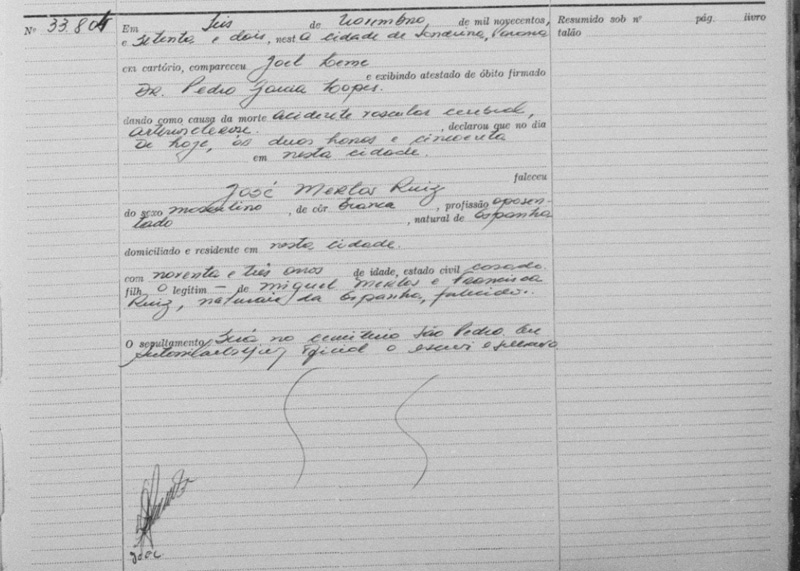 Nº 33.804
Em Seis de Novembro de mil novecentos,
e Setenta e dois, nesta cidade de Londrina, Paraná
em cartório, compareceu Joel Leme
e exibindo atestado de óbito firmado
Dr. Pedro Garcia Lopes.
dando como causa da morte acidente vascular cerebral,
arteriosclerose. , declarou que no dia
de hoje, às duas horas e cincoenta
em nesta cidade.
faleceu
José Merlos Ruiz
do sexo masculino , de côr branca , profissão aposen-
tado , natural de Espanha
domiciliado e residente em nesta cidade.
com noventa e três anos de idade, estado civil casado.
filho legitim — de Miguel Merlos e Francisca
Ruiz, naturais da Espanha, falecidos.
O sepultamento Será no cemitério São Pedro. Eu
Oficial o escrevi e
Resumido sob nº pág. livro
talão